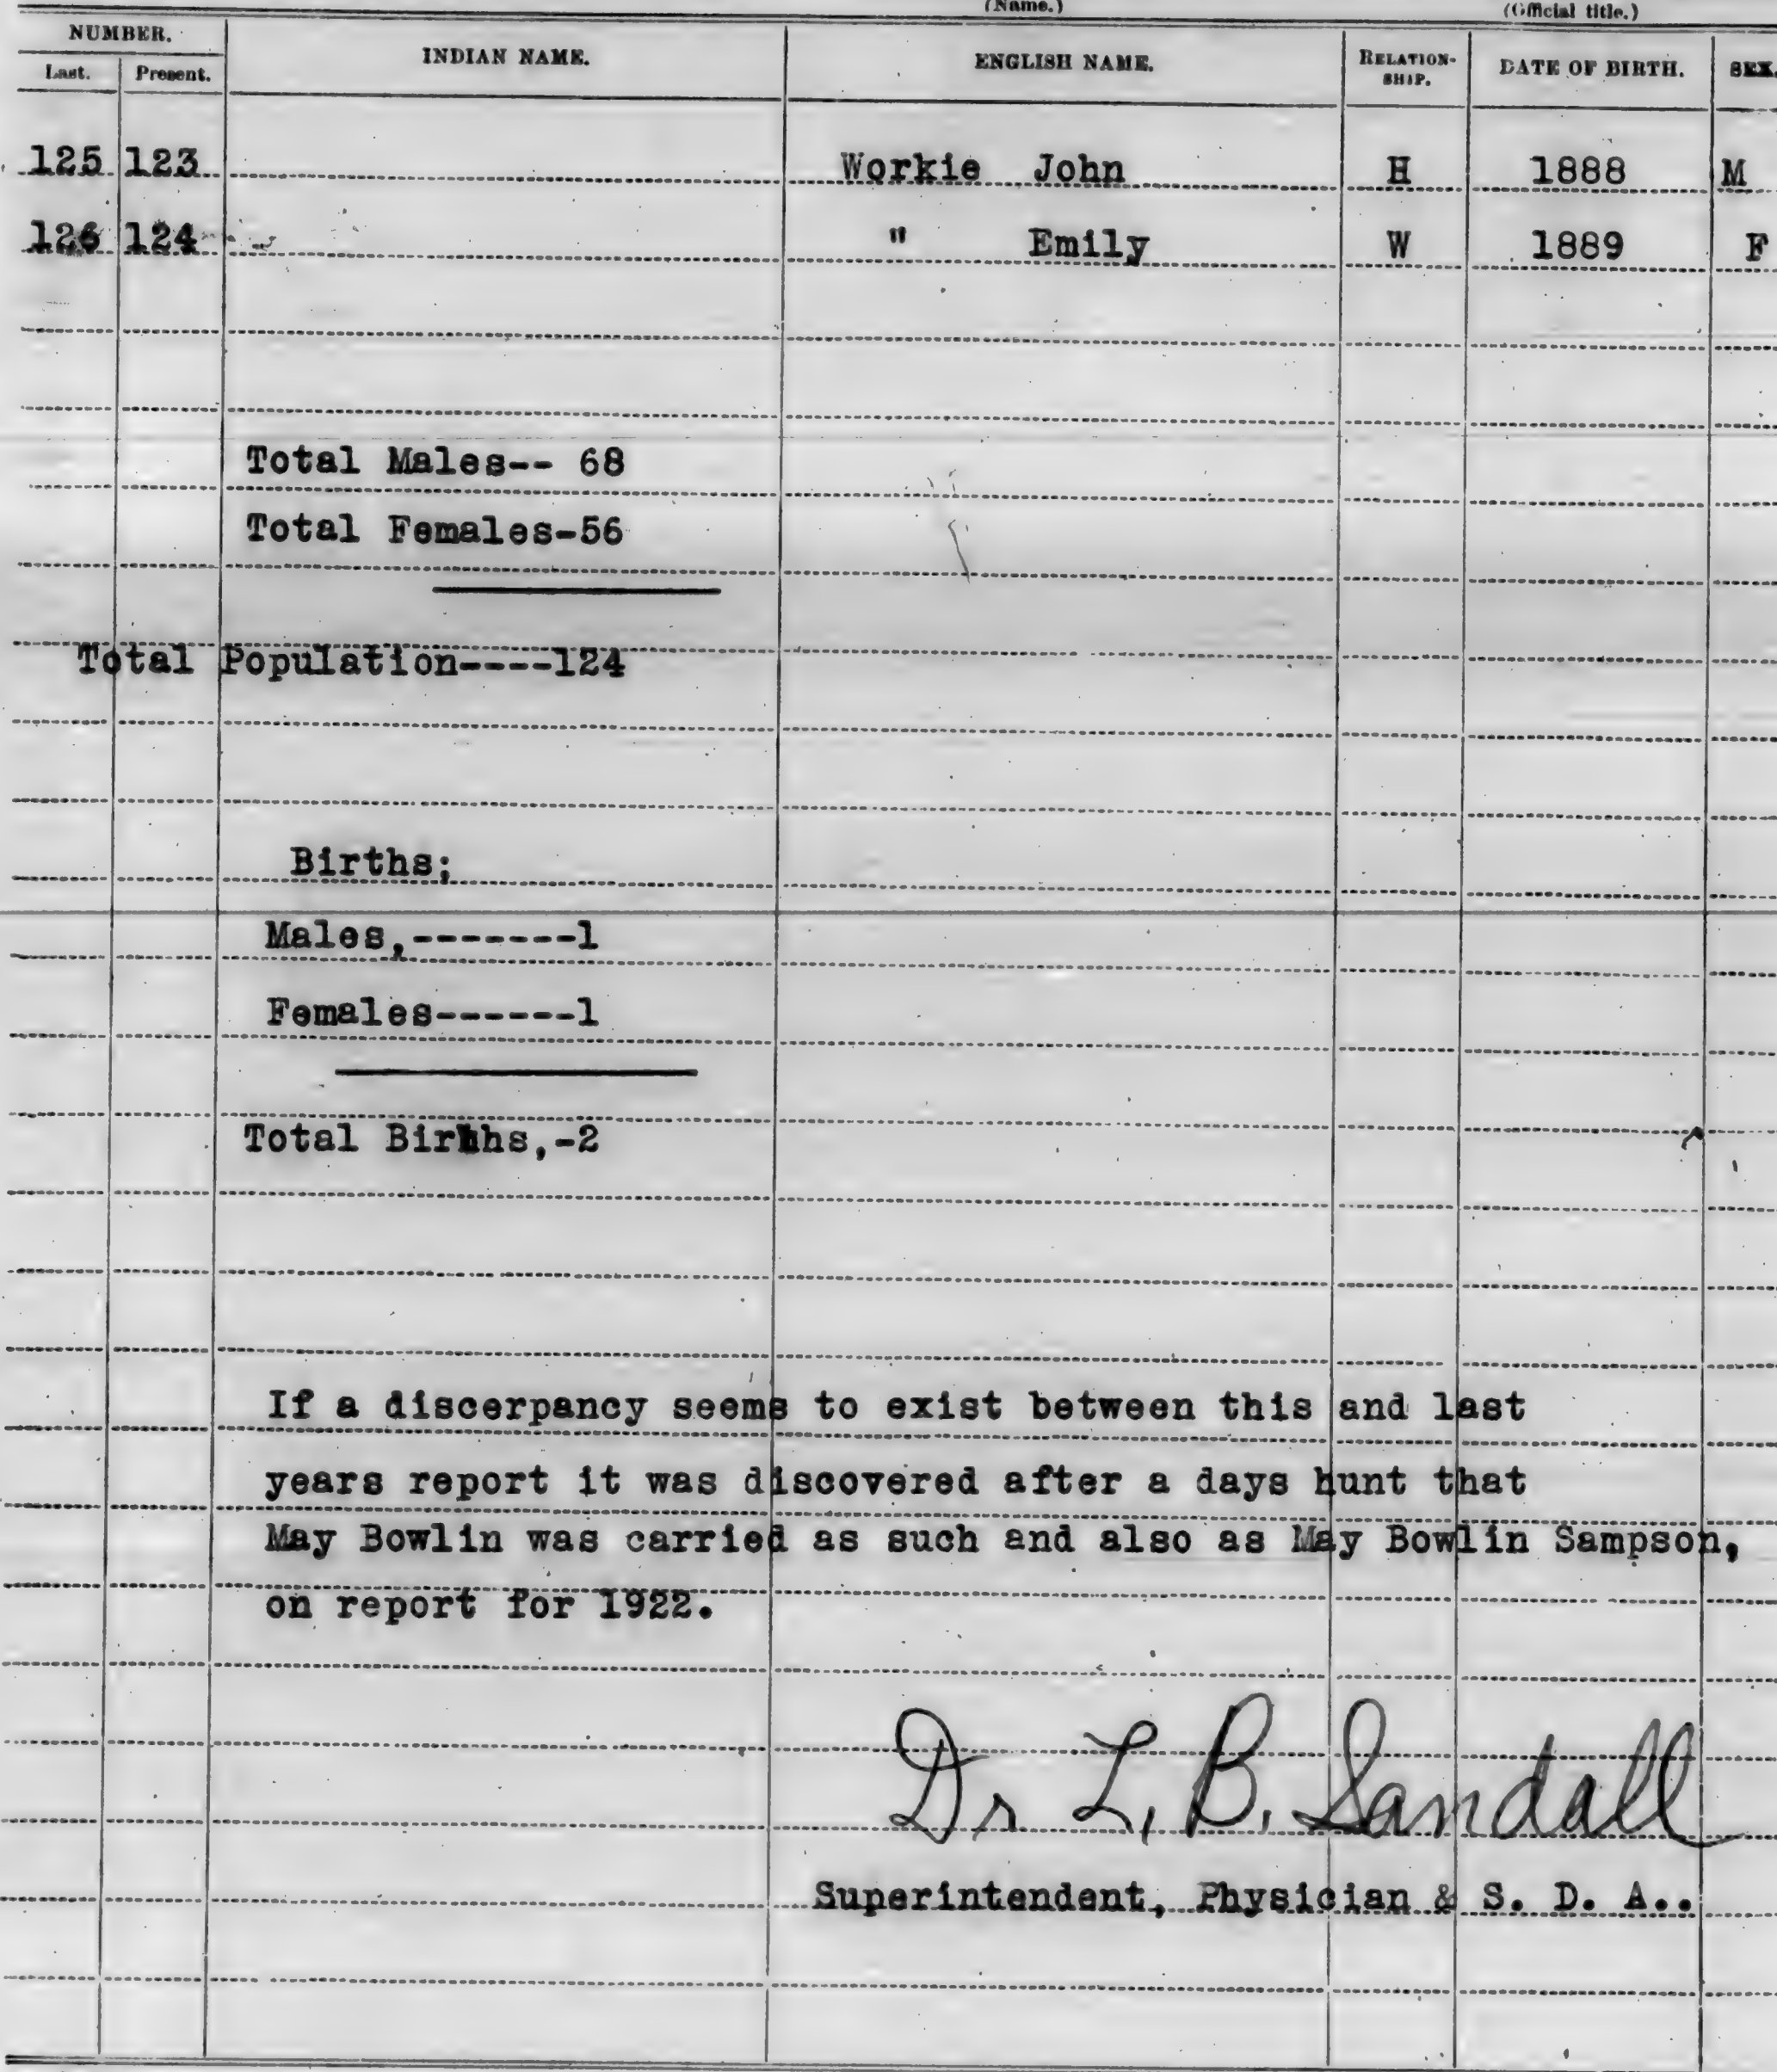 (Name.) (Official title.)
NUMBER. INDIAN NAME. ENGLISH NAME. RELATION-SHIP. DATE OF BIRTH. SEX.
Last. Present.
125 123 Workie John H 1888 M
126 124 " Emily W 1889 F
Total Males-- 68
Total Females-56
Total Population----124
Births;
Males,-------1
Females------1
Total Births,-2
If a discerpancy seems to exist between this and last
years report it was discovered after a days hunt that
May Bowlin was carried as such and also as May Bowlin Sampson,
on report for 1922.
Dr L. B. Sandall
Superintendent, Physician & S. D. A..